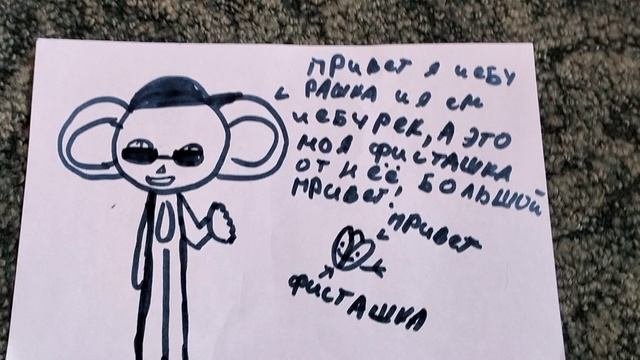 привет я чебу
рашка и я ем
чебурек, а это
моя фисташка
от неё большой
привет!
привет
фисташка